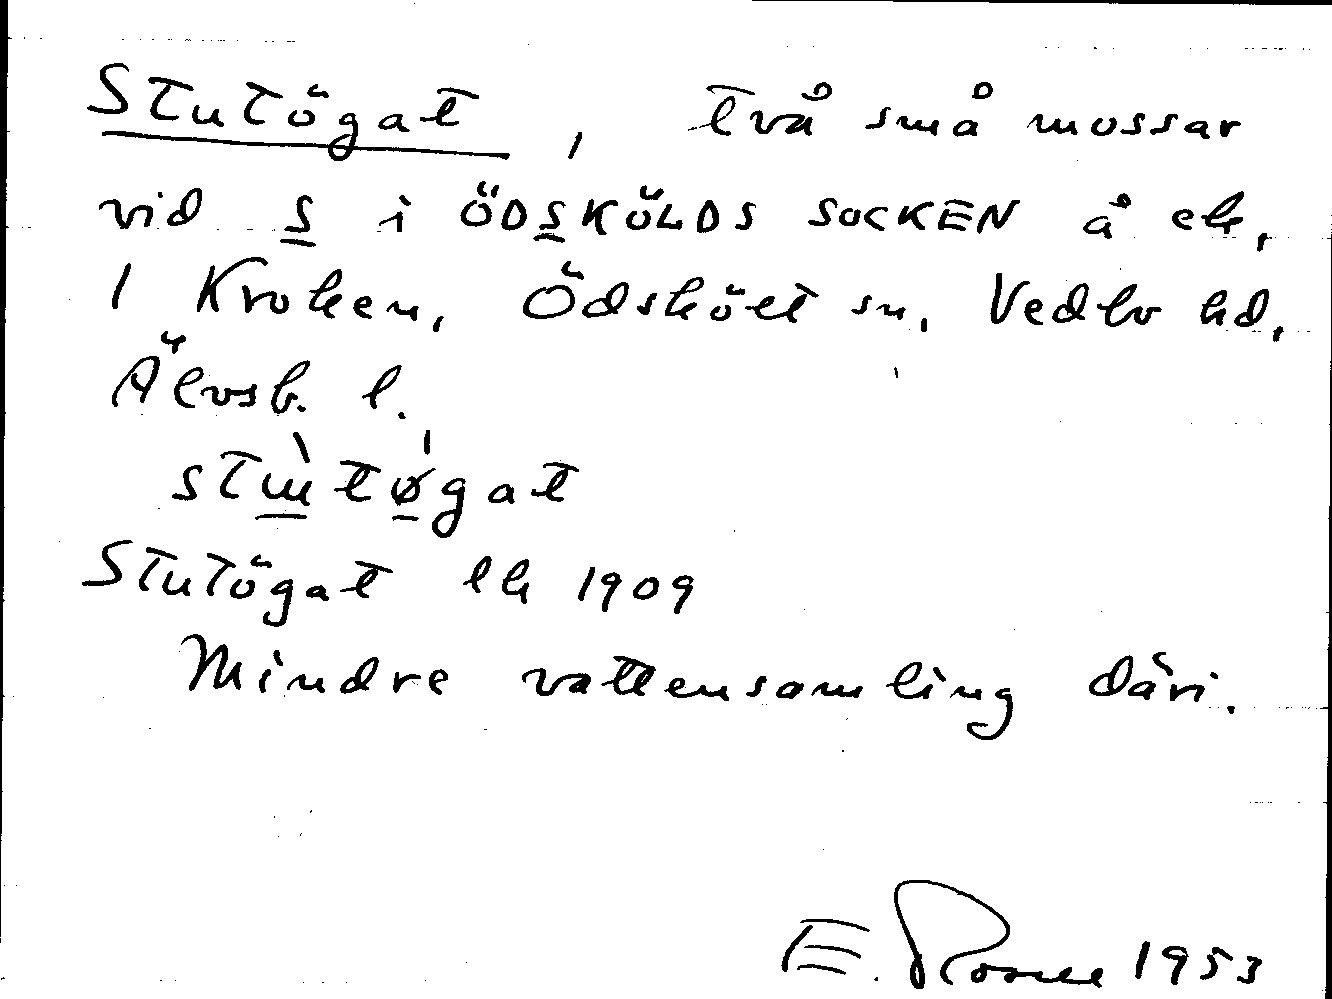 Stutögat, två små mossar
vid S i ÖDSKÖLDS SOCKEN å ek.
1 Kroken, Ödskölt sn, Vedbo hd,
Älvsb. l.
Stutögat lk 1909
Mindre vattensamling däri.
E. 1953